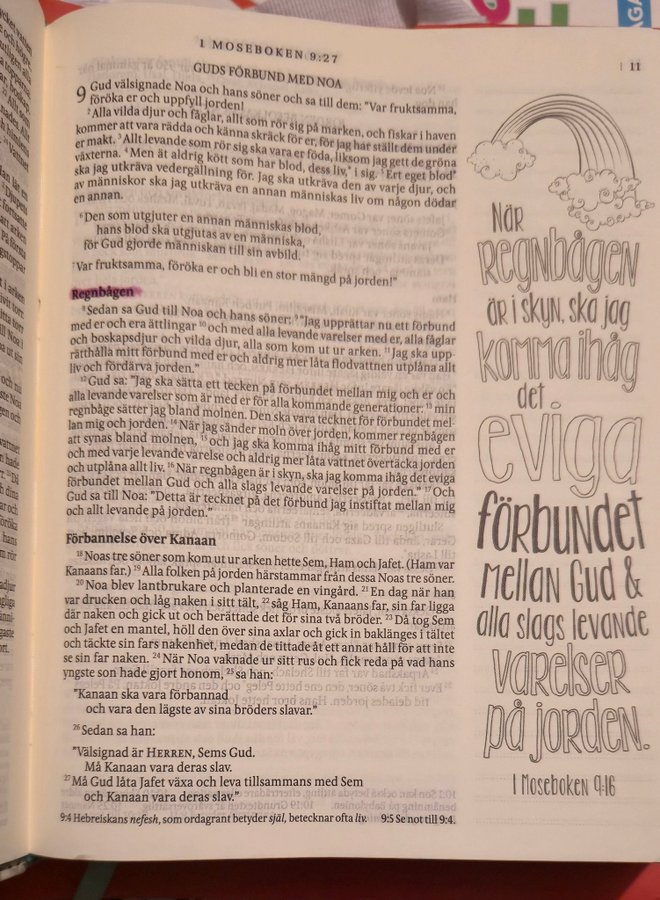 I MOSEBOKEN 9:27
11
GUDS FÖRBUND MED NOA
9 Gud välsignade Noa och hans söner och sa till dem: "Var fruktsamma,
föröka er och uppfyll jorden!
2Alla vilda djur och fåglar, allt som rör sig på marken, och fiskar i haven
kommer att vara rädda och känna skräck för er, för jag har ställt dem under
er makt. 3Allt levande som rör sig ska vara er föda, liksom jag gett de gröna
växterna. 4Men ät aldrig kött som har blod, dess liv, i sig. 5Ert eget blod
ska jag utkräva vedergällning för. Jag ska utkräva den av varje djur, och
av människor ska jag utkräva en annan människas liv om någon dödar
en annan.
6Den som utgjuter en annan människas blod,
hans blod ska utgjutas av en människa,
för Gud gjorde människan till sin avbild.
7Var fruktsamma, föröka er och bli en stor mängd på jorden!"
Regnbågen
8Sedan sa Gud till Noa och hans söner: 9"Jag upprättar nu ett förbund
med er och era ättlingar 10och med alla levande varelser med er, alla fåglar
och boskapsdjur och vilda djur, alla som kom ut ur arken. 11Jag ska upp-
rätthålla mitt förbund med er och aldrig mer låta flodvatten utplåna allt
liv och fördärva jorden."
12Gud sa: "Jag ska sätta ett tecken på förbundet mellan mig och er och
alla levande varelser som är med er för alla kommande generationer: 13min
regnbåge sätter jag bland molnen. Den ska vara tecknet för förbundet mel-
lan mig och jorden. 14När jag sänder moln över jorden, kommer regnbågen
att synas bland molnen, 15och jag ska komma ihåg mitt förbund med er
och med varje levande varelse och aldrig mer låta vattnet övertäcka jorden
och utplåna allt liv. 16När regnbågen är i skyn, ska jag komma ihåg det eviga
förbundet mellan Gud och alla slags levande varelser på jorden." 17Och
Gud sa till Noa: "Detta är tecknet på det förbund jag instiftat mellan mig
och allt levande på jorden."
Förbannelse över Kanaan
18Noas tre söner som kom ut ur arken hette Sem, Ham och Jafet. (Ham var
Kanaans far.) 19Alla folken på jorden härstammar från dessa Noas tre söner.
20Noa blev lantbrukare och planterade en vingård. 21En dag när han
var drucken och låg naken i sitt tält, 22såg Ham, Kanaans far, sin far ligga
där naken och gick ut och berättade det för sina två bröder. 23Då tog Sem
och Jafet en mantel, höll den över sina axlar och gick in baklänges i tältet
och täckte sin fars nakenhet, medan de tittade åt ett annat håll för att inte
se sin far naken. 24När Noa vaknade ur sitt rus och fick reda på vad hans
yngste son hade gjort honom, 25sa han:
"Kanaan ska vara förbannad
och vara den lägste av sina bröders slavar."
26Sedan sa han:
"Välsignad är HERREN, Sems Gud.
Må Kanaan vara deras slav.
27Må Gud låta Jafet växa och leva tillsammans med Sem
och Kanaan vara deras slav."
9:4 Hebreiskans nefesh, som ordagrant betyder själ, betecknar ofta liv. 9:5 Se not till 9:4.
När
regnbågen
är i skyn, ska jag
komma ihåg
det
eviga
förbundet
mellan Gud &
alla slags levande
varelser
på jorden.
1 Moseboken 9:16